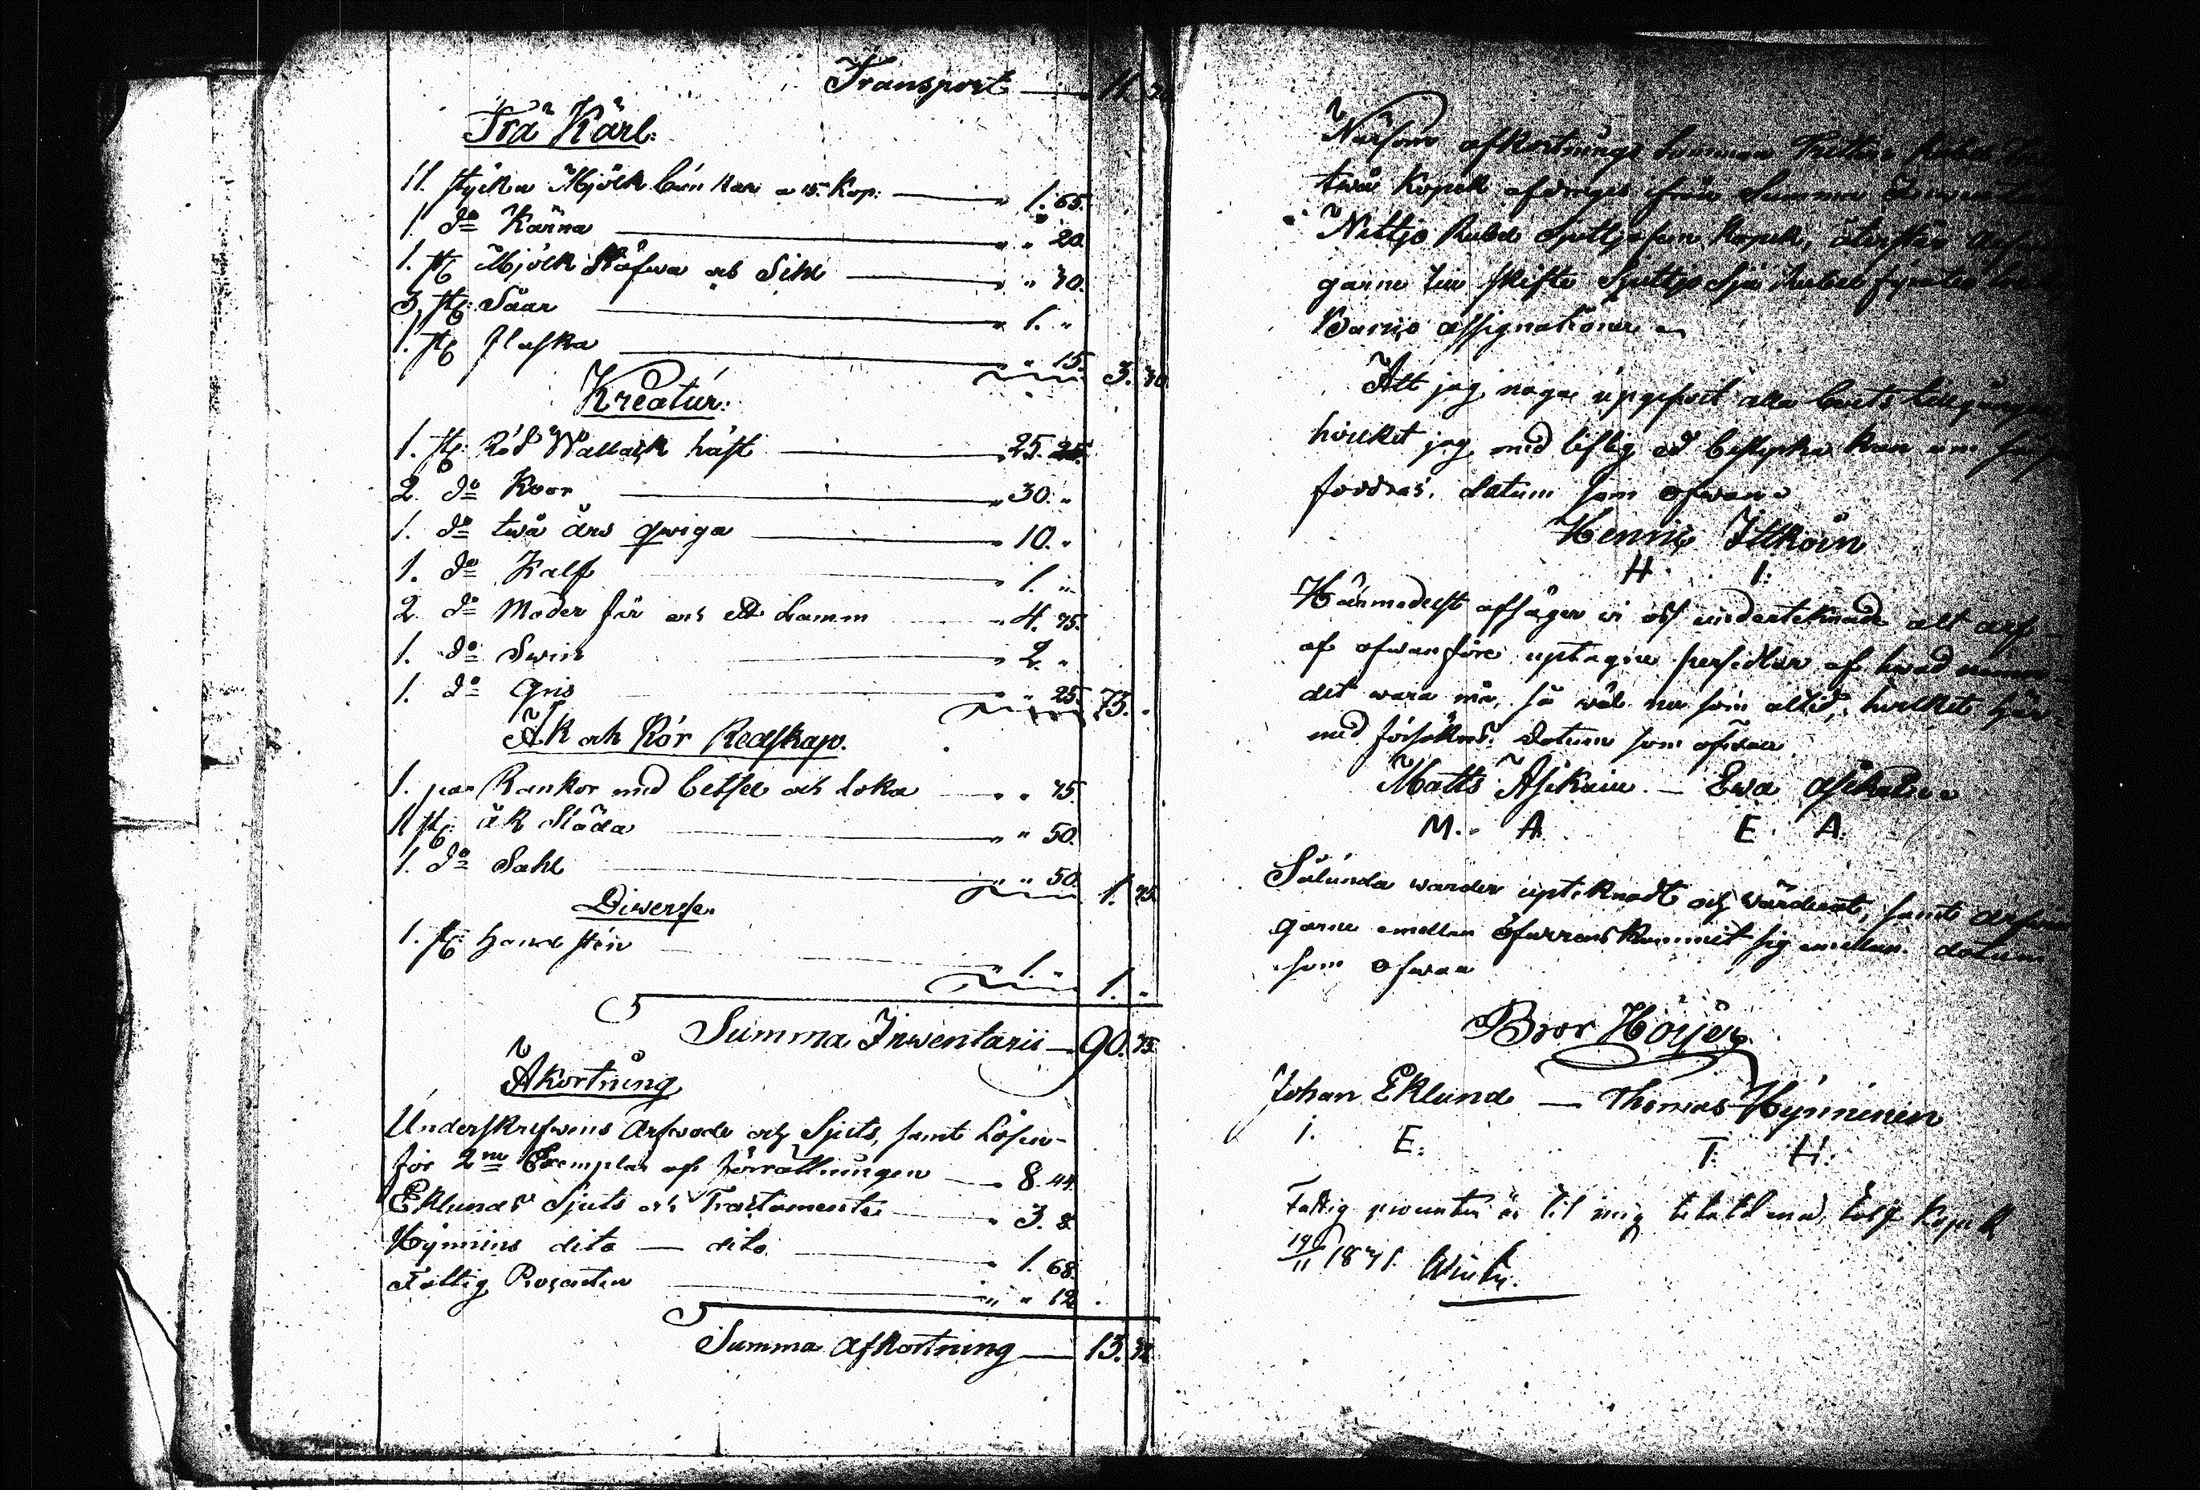 Transport — 11.
Trä Kärl.
11. stycken Mjölk bunkar a 15. Kop: — „ 1. 65.
1. do Kärna — „ „ 20.
1. st Mjölk Stäfwa och Sihl — „ „ 30.
3. st: Såar — „ 1. „
1. st flaska — „ „ 15. 3. 30.
Kreatur.
1. st: Röd Wallack häst — 25.
2. do Koor — „ 30. „
1. do twå års qwiga — „ 10. „
1. do Kalf — „ 1. „
2. do Moder får och ett Lamm — „ 4. 75.
1. do Swin — „ 2. „
1. do Gris — „ „ 25. 73. „
Åk och Kör Redskap.
1. par Rankor med betsel och Loka — „ „ 75.
1 st: åk Släda — „ „ 50.
1. do Sahl — „ „ 50. 1. 75.
Diwerse
1. st: Hand stén — 1. „ 1. „
Summa Inwentarii — 90. 75.
Åkortning
Underskrefwens Arfwode och Sjuts, samt Lösen
för 2ne Exemplar af förrättningen — „ 8. 44.
Eklunds Sjuts och Tractamente — „ 3. 8.
Hynnins dito — dito — „ 1. 68.
Fattig Procenten — „ „ 12.
Summa Afkortning — 13. 32.
Närsom afkortnings Summan Tretton Rubel
twå Kopek afdrages ifrån Summa
Nittjo Rubel Sjuttjofem Kopek, återstår Arf-
garne till skifte Sjuttjo Sju Rubel fyratio
Banco assignationer
Att jag noga uppgifvit alla boets tillgångar
hvilket jag med liflig ed bestyrka kan om så
fordras. datum som ofwan
Henric Ittkoin
H. I.
Härmedelst afsäger vi oss undertecknade alt arf
af ofwanföre uptagne persedlar af hwad namn
det wara må, så wäl nu som altid, hvilket här-
med försäkras. Datum som ofwan.
Matts Asikain — Ewa Asikain
M. A. E. A.
Sålunda warder uptecknadt och wärderat, samt arfwin
garne emellan öfwerenskommit sig emellan. datum
som ofwan
Bror Höijer
Johan Eklund — Thomas Hynninen
I. E. T. H.
Fattig procenten är til mig betald med tolf Kopek
19/11 1871.